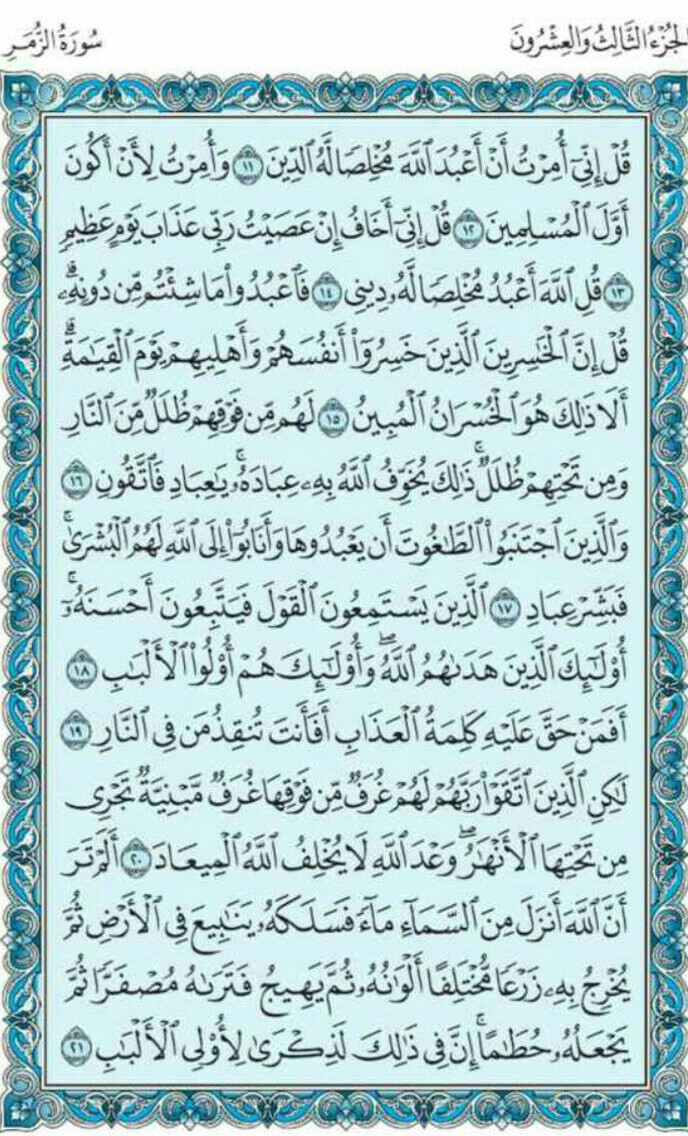 الجُزْءُ الثَّالِثُ وَالعِشْرُونَ
سُورَةُ الزُّمَرِ
قُلْ إِنِّىٓ أُمِرْتُ أَنْ أَعْبُدَ ٱللَّهَ مُخْلِصًا لَّهُ ٱلدِّينَ ١١ وَأُمِرْتُ لِأَنْ أَكُونَ
أَوَّلَ ٱلْمُسْلِمِينَ ١٢ قُلْ إِنِّىٓ أَخَافُ إِنْ عَصَيْتُ رَبِّى عَذَابَ يَوْمٍ عَظِيمٍ
١٣ قُلِ ٱللَّهَ أَعْبُدُ مُخْلِصًا لَّهُۥ دِينِى ١٤ فَٱعْبُدُوا۟ مَا شِئْتُم مِّن دُونِهِۦۗ
قُلْ إِنَّ ٱلْخَٰسِرِينَ ٱلَّذِينَ خَسِرُوٓا۟ أَنفُسَهُمْ وَأَهْلِيهِمْ يَوْمَ ٱلْقِيَٰمَةِۗ
أَلَا ذَٰلِكَ هُوَ ٱلْخُسْرَانُ ٱلْمُبِينُ ١٥ لَهُم مِّن فَوْقِهِمْ ظُلَلٌ مِّنَ ٱلنَّارِ
وَمِن تَحْتِهِمْ ظُلَلٌۚ ذَٰلِكَ يُخَوِّفُ ٱللَّهُ بِهِۦ عِبَادَهُۥۚ يَٰعِبَادِ فَٱتَّقُونِ ١٦
وَٱلَّذِينَ ٱجْتَنَبُوا۟ ٱلطَّٰغُوتَ أَن يَعْبُدُوهَا وَأَنَابُوٓا۟ إِلَى ٱللَّهِ لَهُمُ ٱلْبُشْرَىٰۚ
فَبَشِّرْ عِبَادِ ١٧ ٱلَّذِينَ يَسْتَمِعُونَ ٱلْقَوْلَ فَيَتَّبِعُونَ أَحْسَنَهُۥٓۚ
أُو۟لَٰٓئِكَ ٱلَّذِينَ هَدَىٰهُمُ ٱللَّهُۖ وَأُو۟لَٰٓئِكَ هُمْ أُو۟لُوا۟ ٱلْأَلْبَٰبِ ١٨
أَفَمَنْ حَقَّ عَلَيْهِ كَلِمَةُ ٱلْعَذَابِ أَفَأَنتَ تُنقِذُ مَن فِى ٱلنَّارِ ١٩
لَٰكِنِ ٱلَّذِينَ ٱتَّقَوْا۟ رَبَّهُمْ لَهُمْ غُرَفٌ مِّن فَوْقِهَا غُرَفٌ مَّبْنِيَّةٌ تَجْرِى
مِن تَحْتِهَا ٱلْأَنْهَٰرُۖ وَعْدَ ٱللَّهِ لَا يُخْلِفُ ٱللَّهُ ٱلْمِيعَادَ ٢٠ أَلَمْ تَرَ
أَنَّ ٱللَّهَ أَنزَلَ مِنَ ٱلسَّمَآءِ مَآءً فَسَلَكَهُۥ يَنَٰبِيعَ فِى ٱلْأَرْضِ ثُمَّ
يُخْرِجُ بِهِۦ زَرْعًا مُّخْتَلِفًا أَلْوَٰنُهُۥ ثُمَّ يَهِيجُ فَتَرَىٰهُ مُصْفَرًّا ثُمَّ
يَجْعَلُهُۥ حُطَٰمًاۚ إِنَّ فِى ذَٰلِكَ لَذِكْرَىٰ لِأُو۟لِى ٱلْأَلْبَٰبِ ٢١